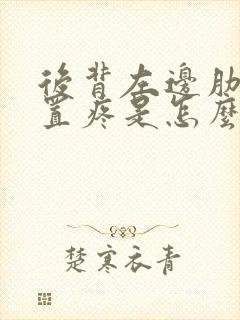 後背左邊肋
置疼是怎麼
楚寒衣青